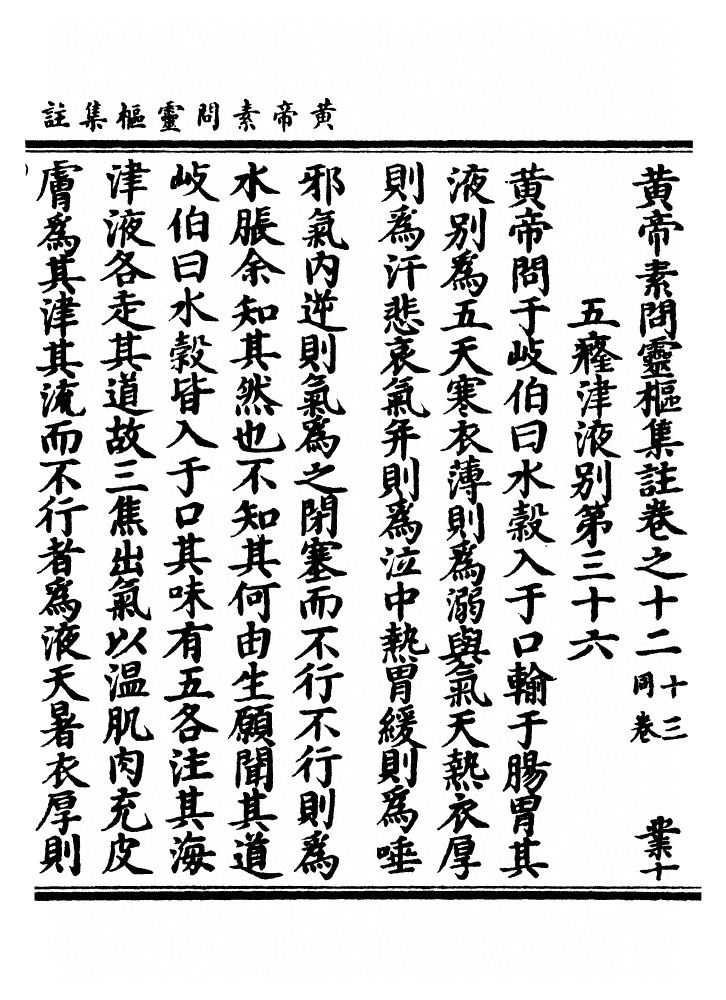 黄帝素問靈樞集註
黄帝素問靈樞集註卷之十二 十三同卷 業十
五癃津液別第三十六
黄帝問于岐伯曰水穀入于口輸于腸胃其
液別為五天寒衣薄則為溺與氣天熱衣厚
則為汗悲哀氣并則為泣中熱胃緩則為唾
邪氣内逆則氣為之閉塞而不行不行則為
水脹余知其然也不知其何由生願聞其道
岐伯曰水穀皆入于口其味有五各注其海
津液各走其道故三焦出氣以温肌肉充皮
膚為其津其流而不行者為液天暑衣厚則